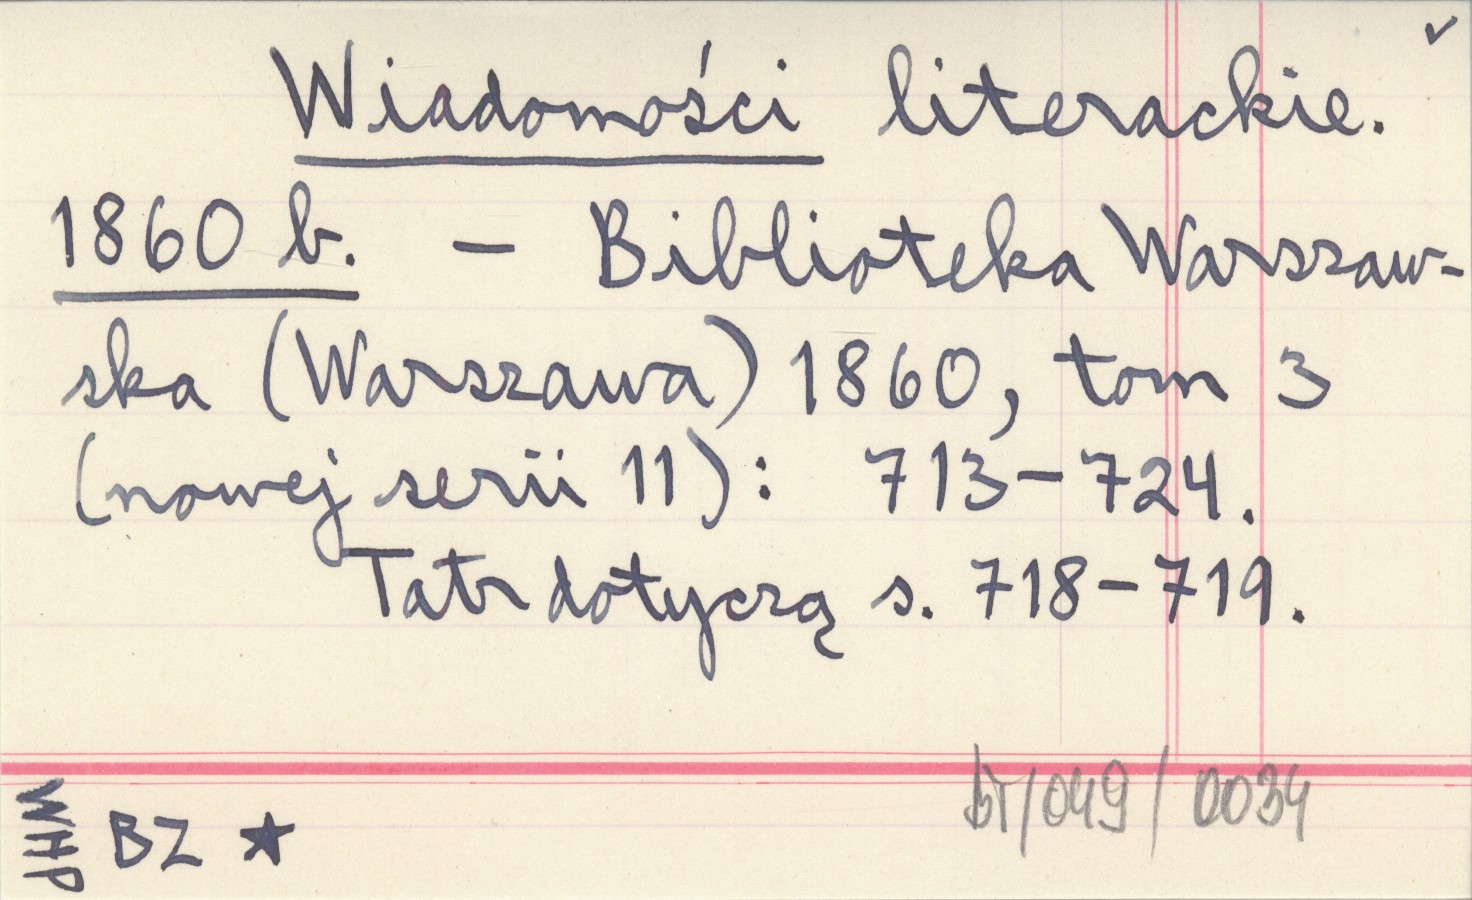 Wiadomości literackie.
1860 b. – Biblioteka Warszaw-
ska (Warszawa) 1860, tom 3
(nowej serii 11): 713–724.
Tatr dotyczą s. 718–719.
bT/049/0034
WHP BZ ★